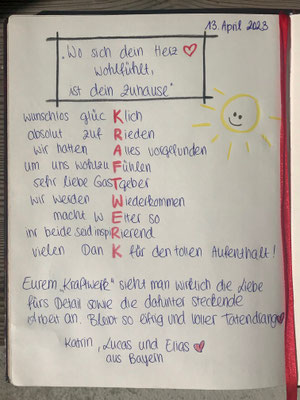 13. April 2023
„Wo sich dein Herz
wohlfühlt,
ist dein Zuhause"
wunschlos glüc Klich
absolut zuf Rieden
wir hatten Alles vorgefunden
um uns wohlzu Fühlen
sehr liebe GasTgeber
wir werden Wiederkommen
macht w Eiter so
ihr beide seid inspiRierend
vielen Dan K für den tollen Aufenthalt!
Eurem „Kraftwerk" sieht man wirklich die Liebe
fürs Detail sowie die dahinter steckende
Arbeit an. Bleibt so eifrig und voller Tatendrang
Katrin, Lucas und Elias
aus Bayern